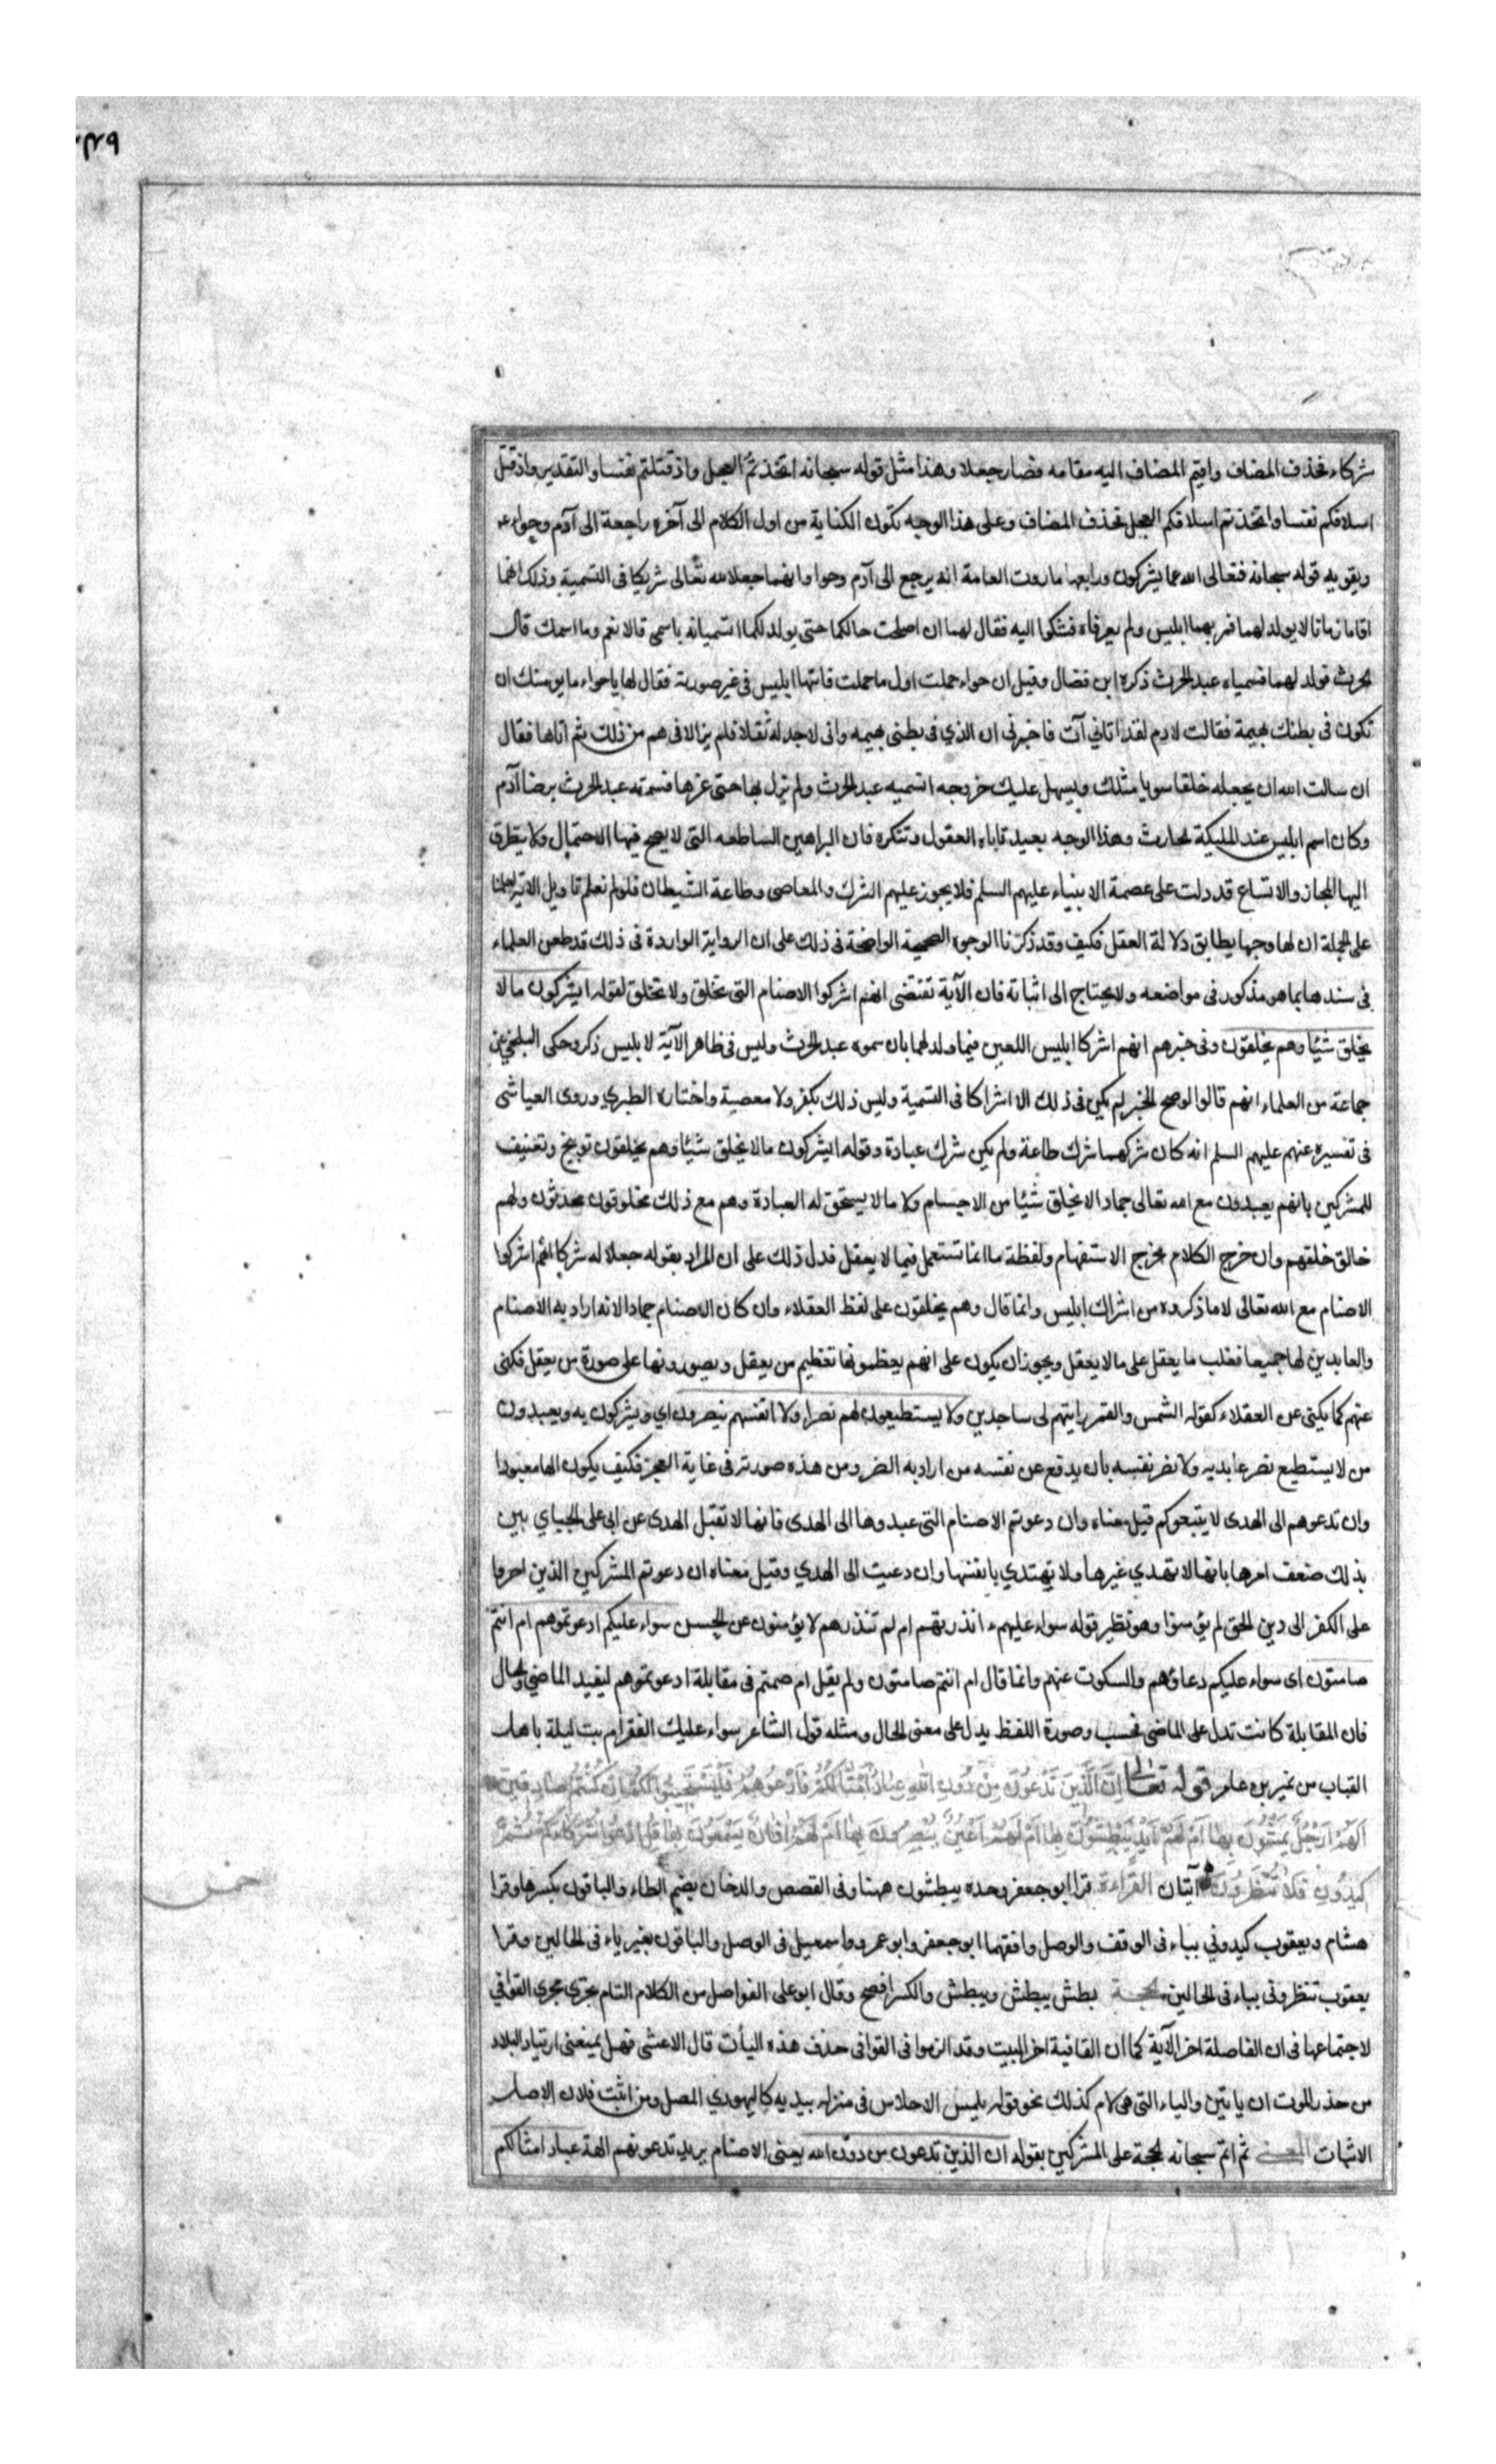 شركاء فحذف المضاف واقيم المضاف اليه مقامه فصار جعلا وهذا مثل قوله سبحانه اتخذتم العجل واذ قتلتم نفسا والتقدير واذ قتل
اسلافكم نفسا واتخذتم اسلافكم العجل فحذف المضاف وعلى هذا الوجه تكون الكناية من اول الكلام الى آخره راجعة الى آدم وحواء
ويقويه قوله سبحانه فتعالى الله عما يشركون ورابعها ما روت العامة انه يرجع الى آدم وحوا وانهما جعلا لله تعالى شريكا في التسمية وذلك انهما
اقاما زمانا لا يولد لهما فمر بهما ابليس ولم يعرفاه فشكوا اليه فقال لهما ان اصلحت حالكما حتى يولد لكما اتسميانه باسمي قالا نعم وما اسمك قال
الحرث فولد لهما فسمياه عبد الحرث ذكره ابن فضال وقيل ان حواء حملت اول ما حملت فاتيها ابليس في غير صورته فقال لها يا حواء ما يومنك ان
تكون في بطنك بهيمة فقالت لادم لقد اتاني آت فاخبرني ان الذي في بطني بهيمه واني لاجد له ثقلا فلم يزالا في هم من ذلك ثم اتاها فقال
ان سالت الله ان يجعله خلقا سويا مثلك ويسهل عليك خروجه اتسميه عبد الحرث ولم يزل بها حتى غرها فسمته عبد الحرث برضا آدم
وكان اسم ابليس عند المليكة الحارث وهذا الوجه بعيد تاباه العقول وتنكره فان البراهين الساطعه التي لا يصح فيها الاحتمال ولا يتطرق
اليها المجاز والاتساع قد دلت على عصمة الانبياء عليهم السلم فلا يجوز عليهم الشرك والمعاصي وطاعة الشيطان فلو لم نعلم تاويل الاية لعلمنا
على الجملة ان لها وجها يطابق دلالة العقل فكيف وقد ذكرنا الوجوه الصحيحة الواضحة في ذلك على ان الرواية الواردة في ذلك قد طعن العلماء
في سندها بما هو مذكور في مواضعه ولا يحتاج الى اثباته فان الآية تقتضي انهم اشركوا الاصنام التي تخلق ولا تخلق لقوله ايشركون ما لا
يخلق شيئا وهم يخلقون وفي خبرهم انهم اشركا ابليس اللعين فيما ولد لهما بان سموه عبد الحرث وليس في ظاهر الآية لابليس ذكر وحكى البلخي عن
جماعة من العلماء انهم قالوا لو صح الخبر لم يكن في ذلك الا اشراكا في التسمية وليس ذلك بكفر ولا معصية واختاره الطبري وروى العياشي
في تفسيره عنهم عليهم السلم انه كان شركهما شرك طاعة ولم يكن شرك عبادة وقوله ايشركون ما لا يخلق شيئا وهم يخلقون توبيخ وتعنيف
للمشركين بانهم يعبدون مع الله تعالى جمادا لا يخلق شيئا من الاجسام ولا ما لا يستحق له العبادة وهم مع ذلك مخلوقون محدثون ولهم
خالق خلقهم وان خرج الكلام مخرج الاستفهام ولفظة ما انما تستعمل فيما لا يعقل فدل ذلك على ان المراد بقوله جعلا له شركا انهم اشركوا
الاصنام مع الله تعالى لا ما ذكروه من اشراك ابليس وانما قال وهم يخلقون على لفظ العقلاء وان كان الاصنام جمادا لانه اراد به الاصنام
والعابدين لها جميعا فغلب ما يعقل على ما لا يعقل ويجوز ان يكون على انهم يعظمونها تعظيم من يعقل ويصورونها على صورة من يعقل فكنى
عنهم كما يكنى عن العقلاء كقوله الشمس والقمر رايتهم لي ساجدين ولا يستطيعون لهم نصرا ولا انفسهم ينصرون اي ويشركون به ويعبدون
من لا يستطيع نصر عابديه ولا نصر نفسه بان يدفع عن نفسه من اراد به الضر ومن هذه صورته في غاية العجز فكيف يكون الها معبودا
وان تدعوهم الى الهدى لا يتبعوكم قيل معناه وان دعوتم الاصنام التي عبدوها الى الهدى فانها لا تقبل الهدى عن ابي علي الجبايي بين
بذلك ضعف امرها بانها لا تهدي غيرها ولا تهتدي بانفسها وان دعيت الى الهدي وقيل معناه ان دعوتم المشركين الذين اصروا
على الكفر الى دين الحق لم يؤمنوا وهو نظير قوله سواء عليهم ء انذرتهم ام لم تنذرهم لا يؤمنون عن الحسن سواء عليكم ادعوتموهم ام انتم
صامتون اى سواء عليكم دعاؤهم والسكوت عنهم وانما قال ام انتم صامتون ولم يقل ام صمتم في مقابلة ادعوتموهم ليفيد الماضي والحال
فان المقابلة كانت تدل على الماضي فحسب وصورة اللفظ يدل على معنى الحال ومثله قول الشاعر سواء عليك الفقر ام بت ليلة باهل
القباب من نمير بن عامر قوله تعالى اِنَّ الَّذِينَ تَدْعُونَ مِنْ دُونِ اللهِ عِبَادٌ اَمْثَالُكُمْ فَادْعُوهُمْ فَلْيَسْتَجِيبُوا لَكُمْ اِنْ كُنْتُمْ صَادِقِينَ
اَلَهُمْ اَرْجُلٌ يَمْشُونَ بِهَا اَمْ لَهُمْ اَيْدٍ يَبْطِشُونَ بِهَا اَمْ لَهُمْ اَعْيُنٌ يُبْصِرُونَ بِهَا اَمْ لَهُمْ اٰذَانٌ يَسْمَعُونَ بِهَا قُلِ ادْعُوا شُرَكَاءَكُمْ ثُمَّ
كِيدُونِ فَلَا تُنْظِرُونِ آيتان القراءة قرا ابو جعفر وحده يبطشون ههنا وفي القصص والدخان بضم الطاء والباقون بكسرها وقرا
هشام ويعقوب كيدوني بياء في الوقف والوصل وافقهما ابو جعفر وابو عمرو واسمعيل في الوصل والباقون بغير ياء في الحالين وقرا
يعقوب تنظروني بياء في الحالين الحجة بطش يبطش ويبطش والكسر افصح وقال ابو على الفواصل من الكلام التام تجري مجرى القوافي
لاجتماعها في ان الفاصلة اخر الآية كما ان القافية اخر البيت وقد الزموا في القوافي حذف هذه اليأت قال الاعشى فهل يمنعني ارتياد البلاد
من حذر الموت ان ياتين والياء التي هي لام كذلك نحو قوله يلمس الاحلاس في منزله بيديه كاليهودي المصل ومن اثبت فلان الاصل
الاثبات المعنى ثم اتم سبحانه الحجة على المشركين بقوله ان الذين تدعون من دون الله يعني الاصنام يريد تدعونهم الهة عباد امثالكم